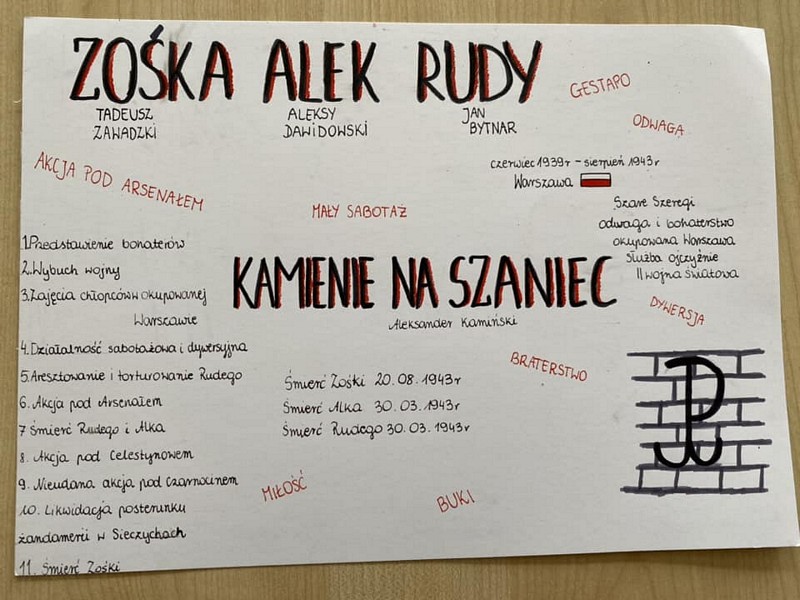 ZOŚKA ALEK RUDY
TADEUSZ
ZAWADZKI
ALEKSY
DAWIDOWSKI
JAN
BYTNAR
GESTAPO
ODWAGA
AKCJA POD ARSENAŁEM
MAŁY SABOTAŻ
czerwiec 1939r - sierpień 1943r
Warszawa
Szare Szeregi
odwaga i bohaterstwo
okupowana Warszawa
służba ojczyźnie
II wojna światowa
1.Przedstawienie bohaterów
2.Wybuch wojny
3.Zajęcia chłopców w okupowanej
Warszawie
4.Działalność sabotażowa i dywersyjna
5.Aresztowanie i torturowanie Rudego
6. Akcja pod Arsenałem
7 Śmierć Rudego i Alka
8. Akcja pod Celestynowem
9. Nieudana akcja pod Czarnocinem
10. Likwidacja posterunku
żandamerii w Sieczychach
11. Śmierć Zośki
KAMIENIE NA SZANIEC
Aleksander Kamiński
DYWERSJA
BRATERSTWO
Śmierć Zośki 20.08.1943r
Śmierć Alka 30.03.1943r
Śmierć Rudego 30.03.1943r
MIŁOŚĆ
BUKI